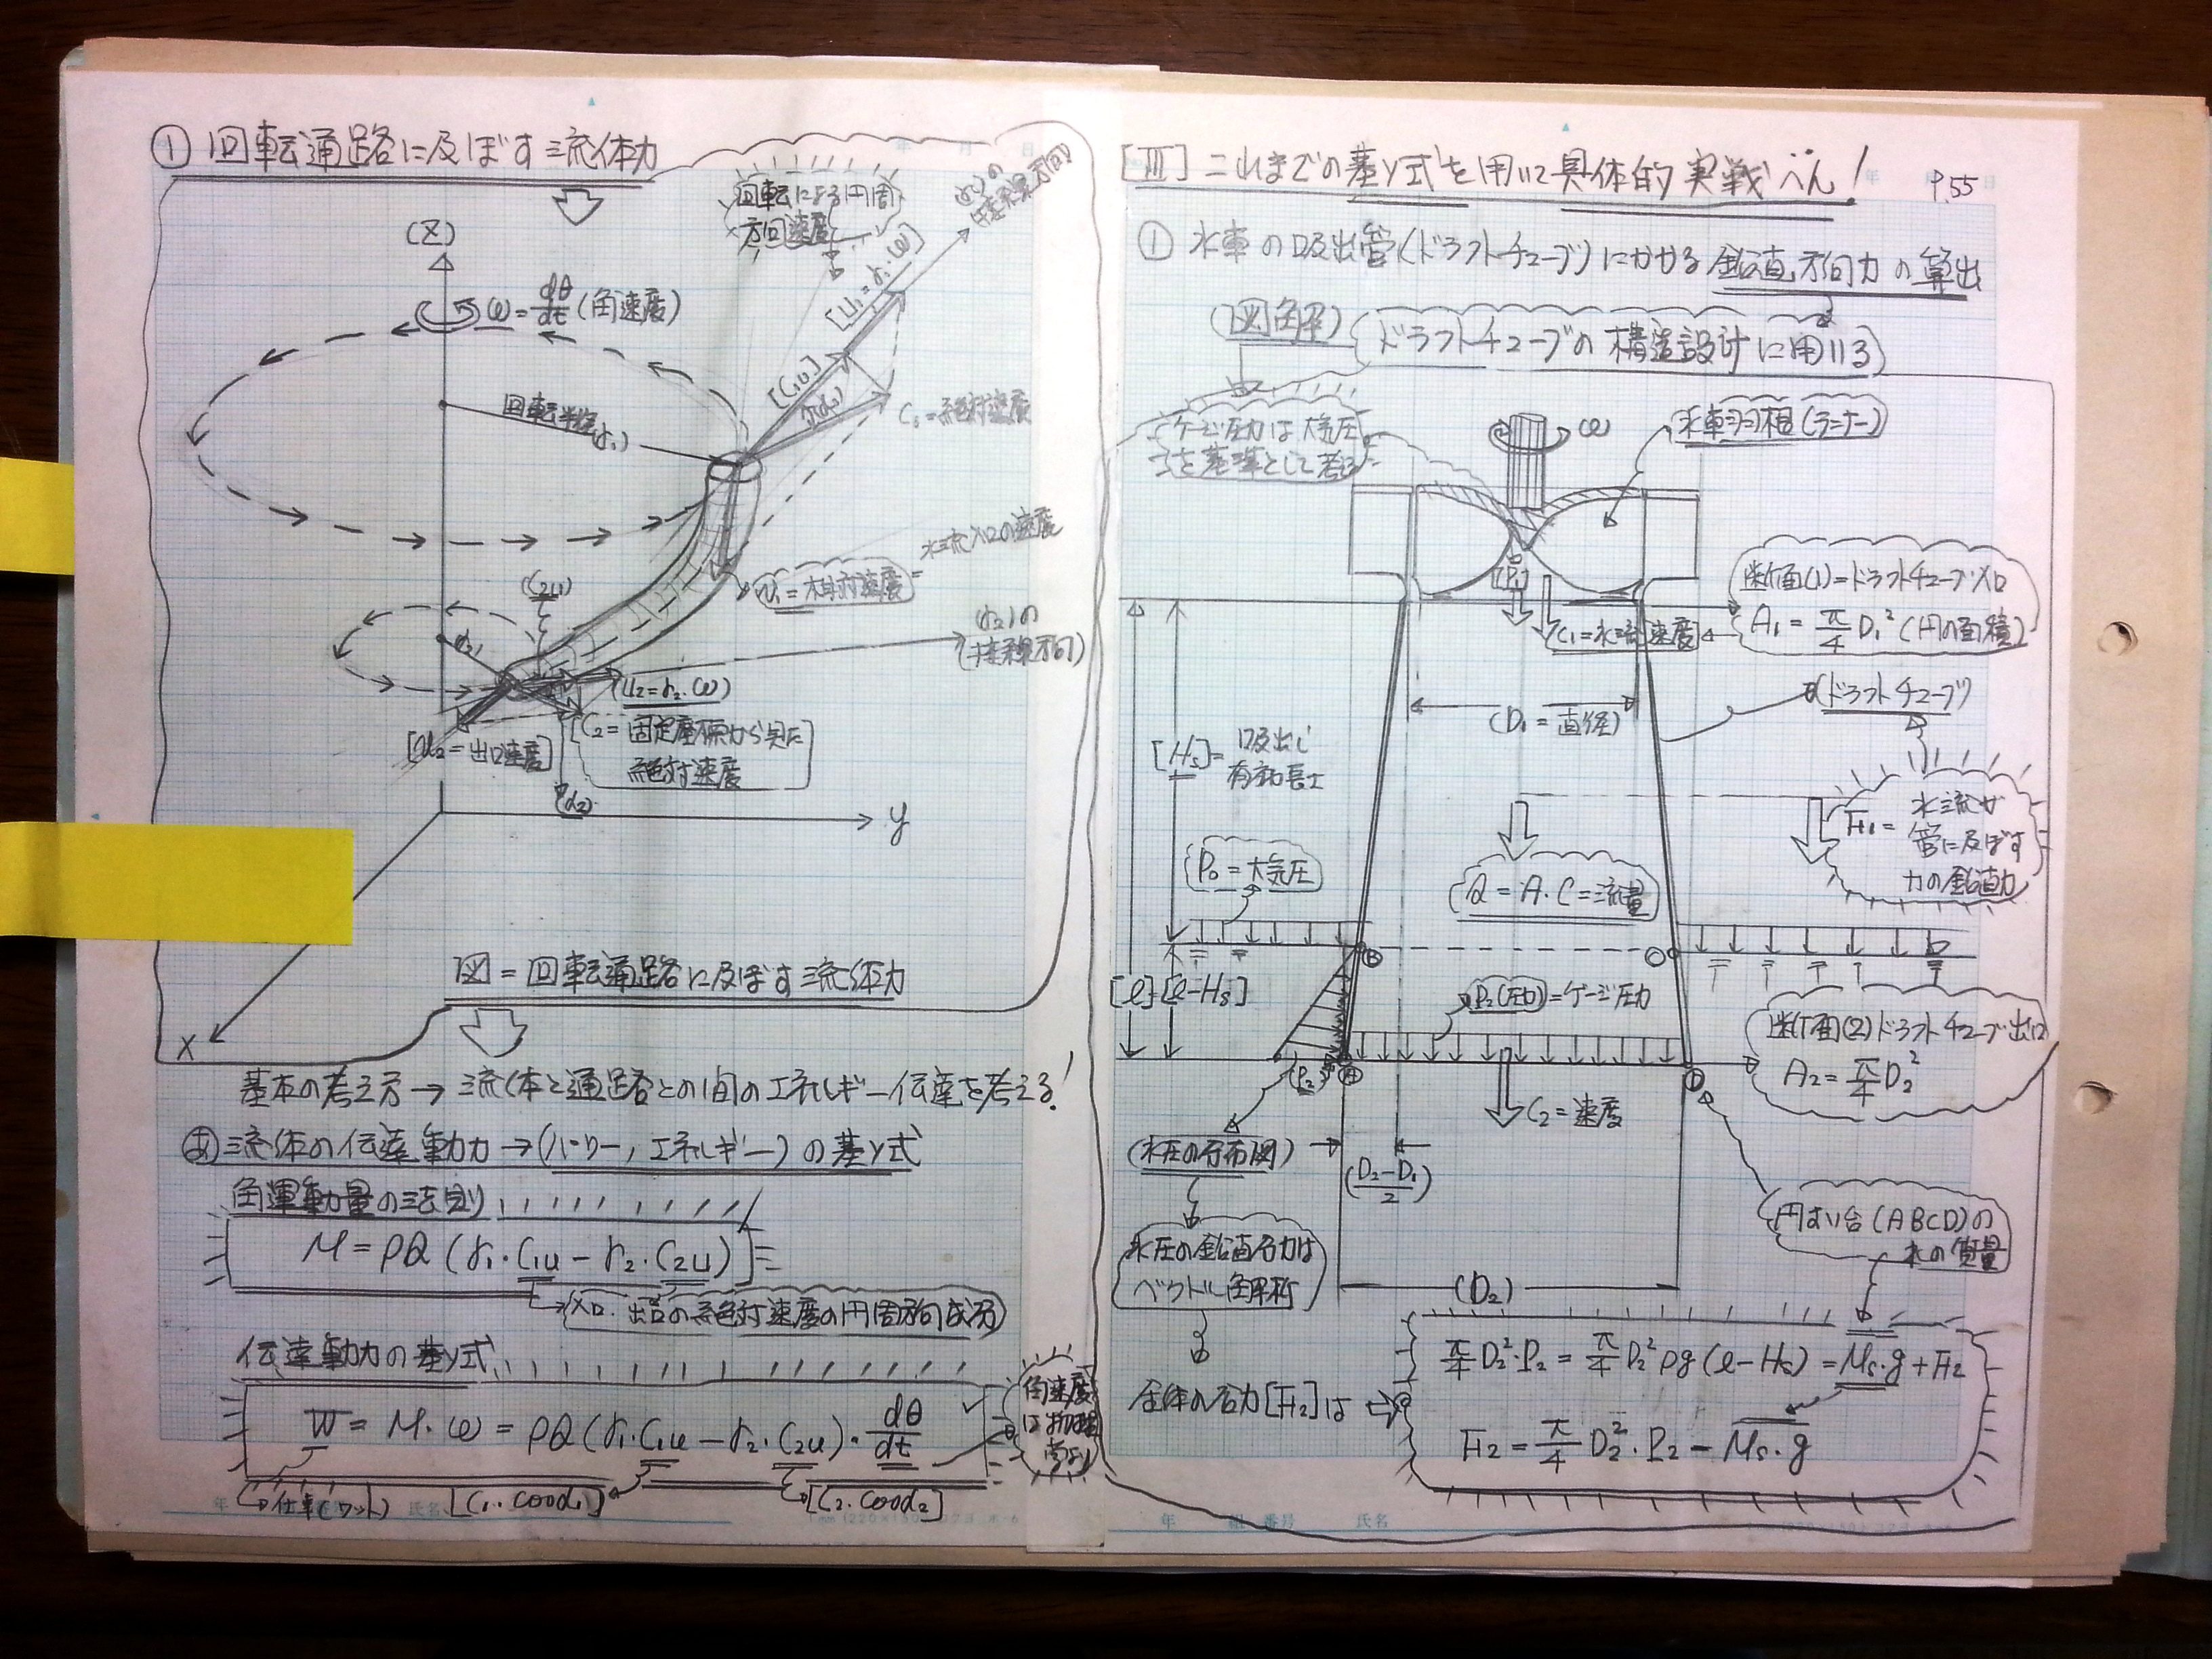 ① 回転通路に及ぼす流体力
回転による円周
方向速度
(r₁)の
接線方向
(Z)
ω = dθ/dt (角速度)
[U₁ = r₁・ω]
[C₁u]
(α₁)
C₁ = 絶対速度
回転半径(r₁)
w₁ = 相対速度 = 水流入口の速度
(C₂u)
(r₂)
(r₂)の
(接線方向)
(U₂ = r₂・ω)
[w₂ = 出口速度]
C₂ = 固定座標から見た
絶対速度
(α₂)
y
x
図 = 回転通路に及ぼす流体力
基本の考え方 → 流体と通路との間のエネルギー伝達を考える!
あ 流体の伝達動力 → (パワー, エネルギー) の基本式
角運動量の法則
M = ρQ (r₁・C₁u − r₂・C₂u)
入口・出口の絶対速度の円周方向成分
伝達動力の基本式
W = M・ω = ρQ (r₁・C₁u − r₂・C₂u)・dθ/dt
角速度
は物理
仕事(ワット)
[C₁・cosα₁]
[C₂・cosα₂]
[III] これまでの基本式を用いて具体的実戦へん!
P.55
① 水車の吸出管(ドラフトチューブ)にかかる鉛直方向力の算出
(図解)
ドラフトチューブの構造設計に用いる
ゲージ圧力は大気圧
を基準として考る
ω
水車羽根(ランナー)
[P₁]
断面(1) = ドラフトチューブ入口
A₁ = π/4 D₁² (円の面積)
C₁ = 水流速度
(D₁ = 直径)
(ドラフトチューブ)
[Hs] = 吸出し
有効長さ
F₁ = 水流が
管に及ぼす
力の鉛直力
P₀ = 大気圧
Q = A・C = 流量
B
C
[ℓ]
[ℓ−Hs]
P₂(圧力) = ゲージ圧力
断面(2) ドラフトチューブ出口
A₂ = π/4 D₂²
(P₂)
A
D
C₂ = 速度
(水圧の分布図)
(D₂−D₁/2)
円すい台(ABCD)の
水の質量
水圧の鉛直合力は
ベクトル解析
(D₂)
π/4 D₂²・P₂ = π/4 D₂² ρg (ℓ−Hs) = Ms・g + F₂
全体の合力[F₂]は
F₂ = π/4 D₂²・P₂ − Ms・g
年 組 番号 氏名